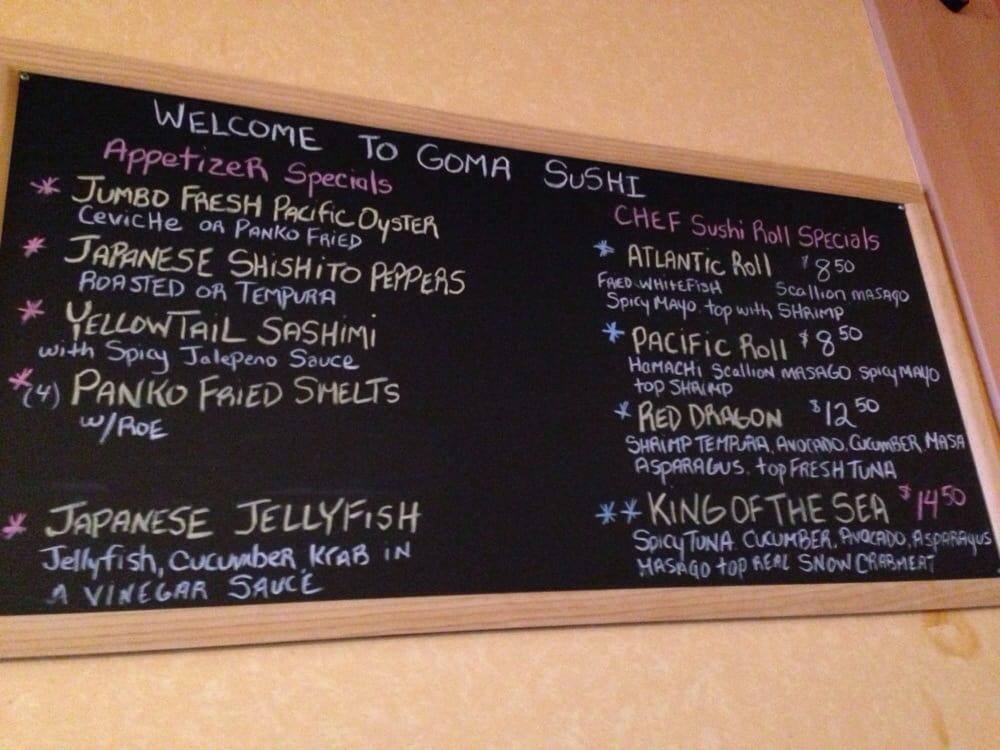 WELCOME TO GOMA SUSHI
Appetizer Specials
* JUMBO FRESH PACIFIC OYSTER
CEVICHE OR PANKO FRIED
* JAPANESE SHISHITO PEPPERS
ROASTED OR TEMPURA
* YELLOWTAIL SASHIMI
with Spicy Jalepeno Sauce
* (4) PANKO FRIED SMELTS
w/ROE
* JAPANESE JELLYFISH
Jellyfish, Cucumber, Krab in
A VINEGAR SAUCE
CHEF Sushi Roll Specials
* ATLANTIC Roll $8.50
FRIED WHITEFISH Scallion MASAGO
Spicy Mayo top with SHRIMP
* PACIFIC Roll $8.50
HAMACHI Scallion MASAGO SPICY MAYO
top SHRIMP
* RED DRAGON $12.50
SHRIMP TEMPURA, AVOCADO, CUCUMBER, MASA
ASPARAGUS. top FRESH TUNA
** KING OF THE SEA $14.50
SPICY TUNA CUCUMBER, AVOCADO, ASPARAGUS
MASAGO top REAL SNOW CRABMEAT